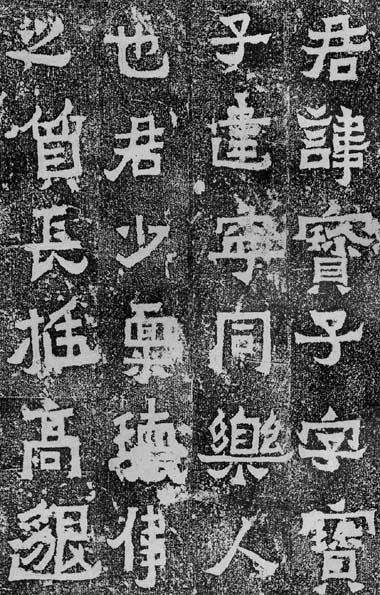 君諱寶子字寶
子建寧同樂人
也君少稟瓌偉
之質長挺高邈